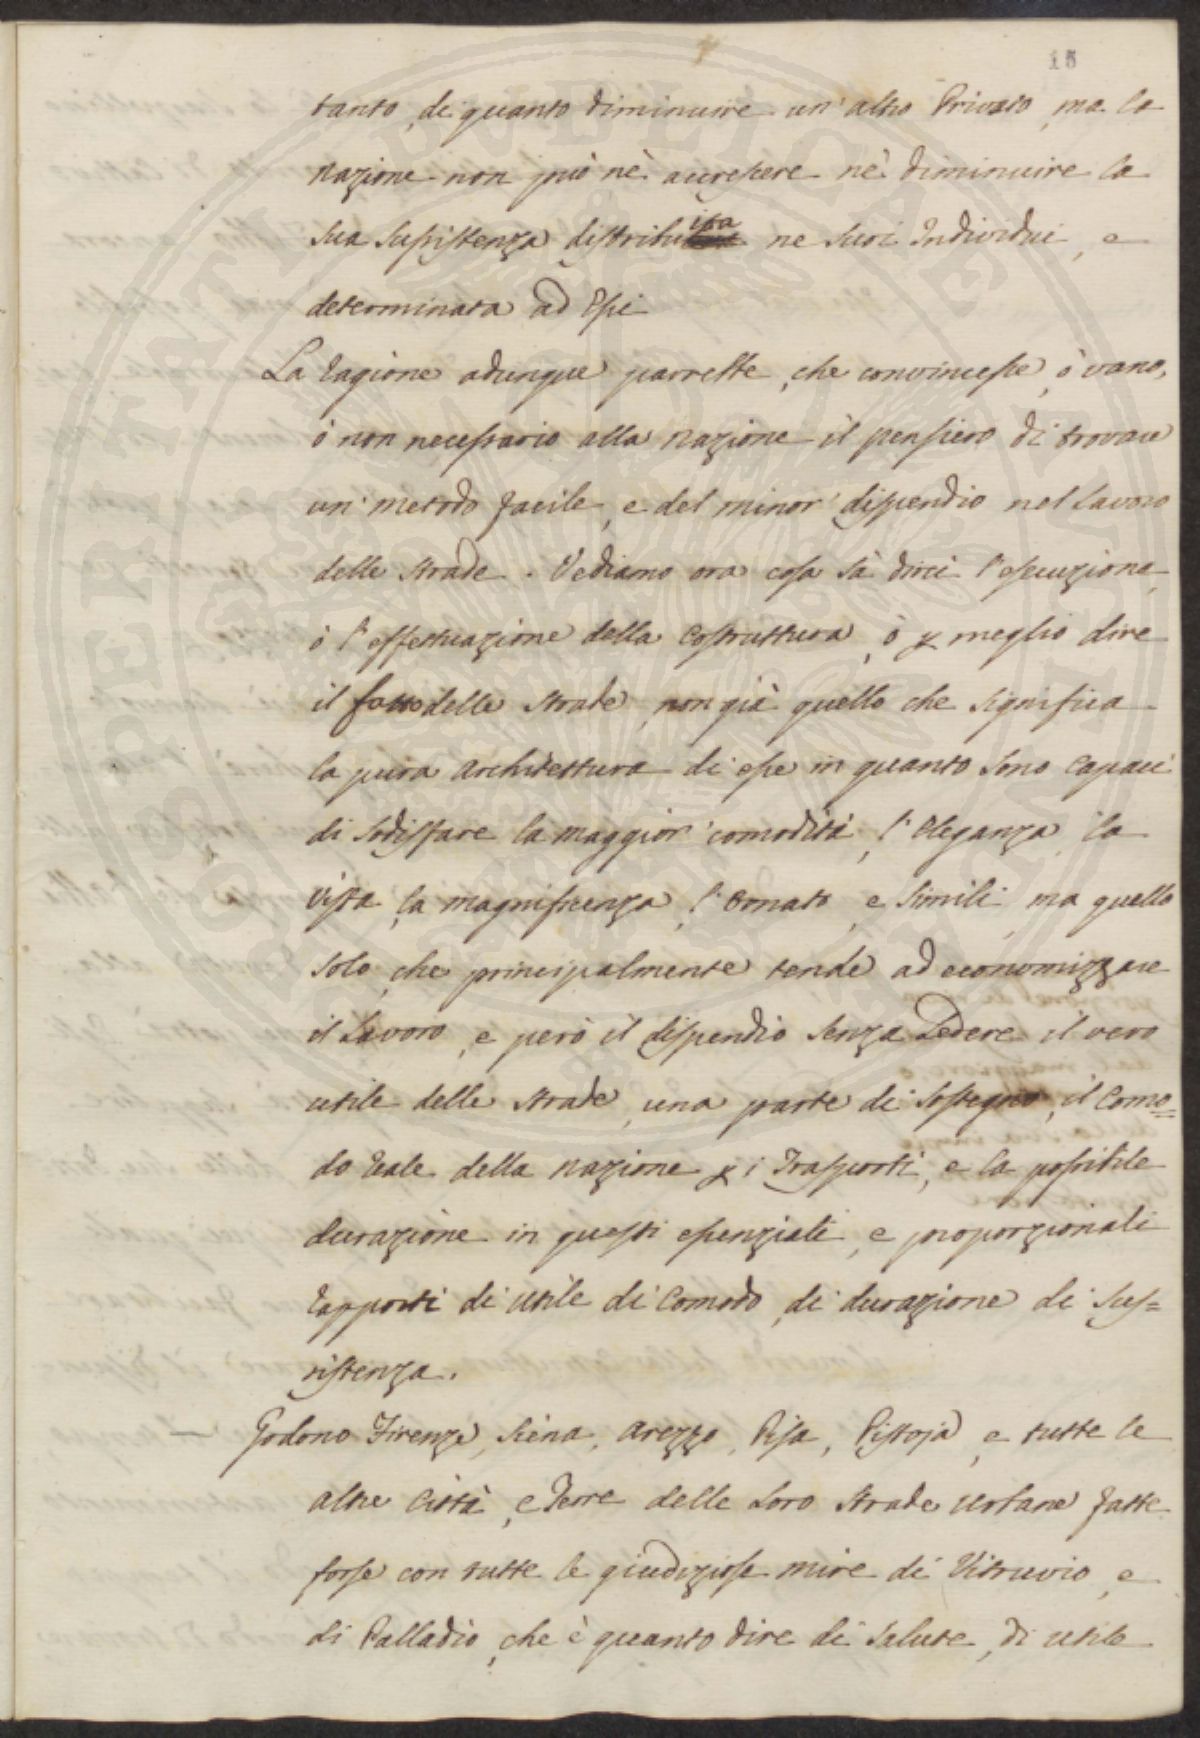 15
tanto, di quanto diminuire un' altro Privato, ma la
nazione non può nè accrescere nè diminuire la
sua sussistenza distribuita ne suoi Individui, e
determinata ad Essi
La ragione adunque parrebbe, che convincesse, ò vano,
ò non necessario alla nazione il pensiero di trovare
un' metodo facile, e del minor' dispendio nel Lavoro
delle strade. Vediamo ora cosa sà dirci l'esecuzione,
ò l'effettuazione della costruttura, ò p meglio dire
il fatto delle strade, non già quello che significa
la pura architettura di esse in quanto sono capaci
di sodisfare la maggior' comodità, l'eleganza, la
vista, la magnificenza, l'ornato, e simili, ma quello
solo, che principalmente tende ad economizzare
il Lavoro, e però il dispendio senza Ledere il vero
utile delle strade, una parte di sostegno, il Como=
do reale della nazione p i Trasporti, e la possibile
durazione in questi essenziali, e proporzionali
rapporti di utile di Comodo, di durazione di sus=
sistenza.
Godono Firenze, Siena, Arezzo, Pisa, Pistoja, e tutte le
altre Città, e Terre delle Loro strade urbane fatte
forse con tutte le giudiziose mire di Vitruvio, e
di Palladio, che è quanto dire di salute, di utile